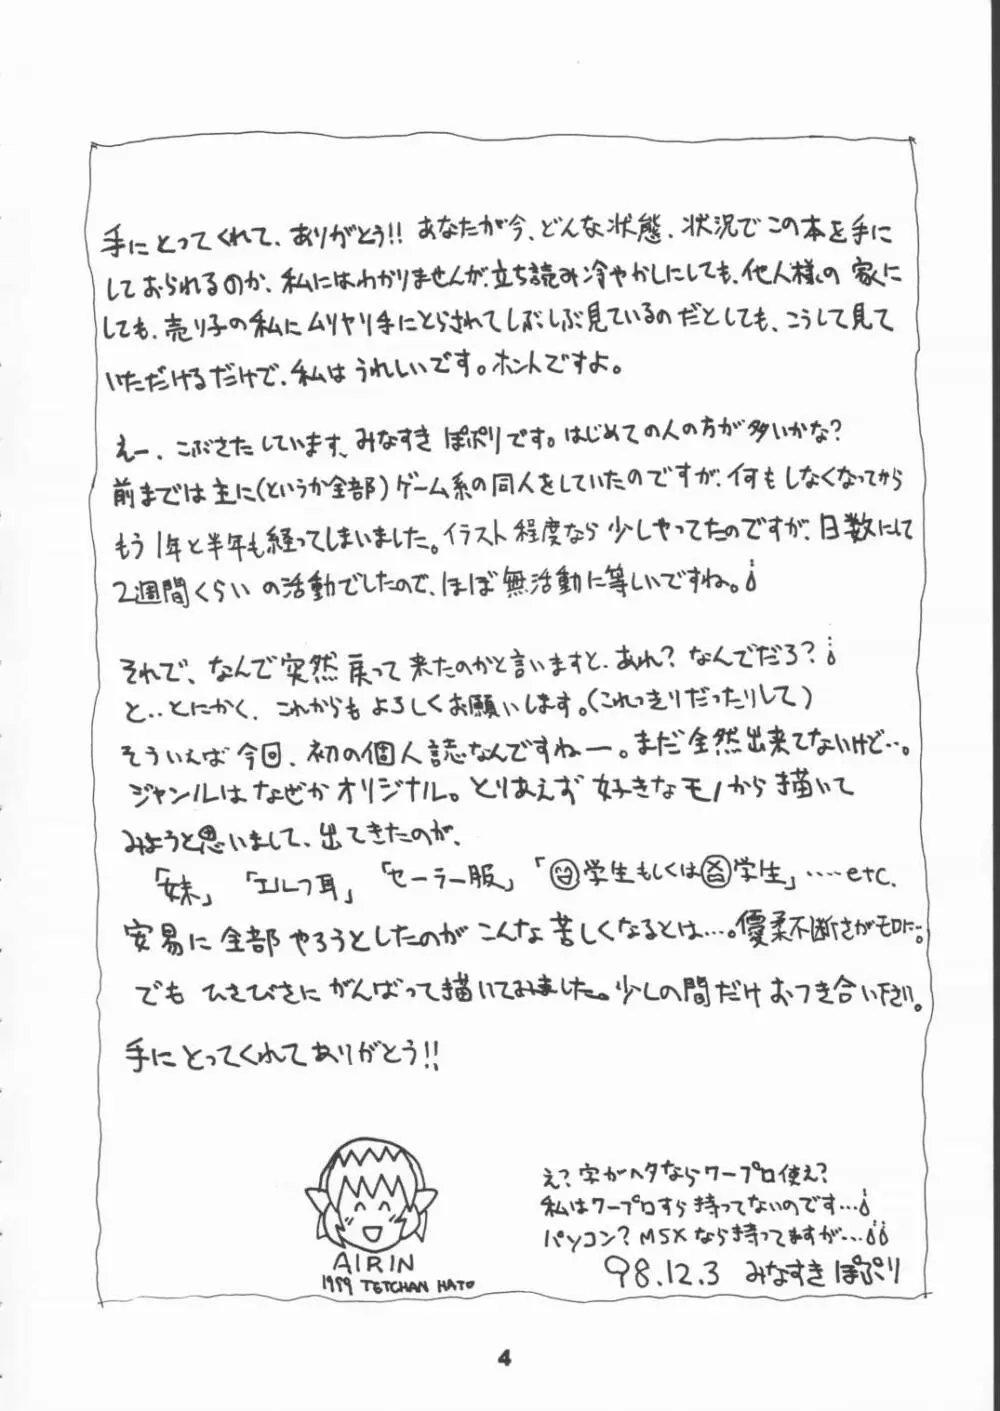 手にとってくれて、ありがとう!! あなたが今、どんな状態、状況でこの本を手に
しておられるのか、私にはわかりませんが、立ち読み冷やかしにしても、他人様の家に
しても、売り子の私にムリヤリ手にとらされてしぶしぶ見ているのだとしても、こうして見て
いただけるだけで、私はうれしいです。ホントですよ。
えー、こぶさたしています、みなすきぽぷりです。はじめての人の方が多いかな?
前までは主に(というか全部)ゲーム系の同人をしていたのですが、何もしなくなってから
もう1年と半年も経ってしまいました。イラスト程度なら少しやってたのですが、日数にして
2週間くらいの活動でしたので、ほぼ無活動に等しいですね。
それで、なんで突然戻って来たのかと言いますと、あれ? なんでだろ?
と‥とにかく、これからもよろしくお願いします。(これっきりだったりして)
そういえば今回、初の個人誌なんですねー。まだ全然出来てないけど…。
ジャンルはなぜかオリジナル。とりあえず好きなモノから描いて
みようと思いまして、出てきたのが、
「妹」「エルフ耳」「セーラー服」「学生もしくは学生」‥‥etc.
安易に全部やろうとしたのがこんな苦しくなるとは…。優柔不断さがモロに。
でもひさびさにがんばって描いてみました。少しの間だけおつき合い下さい。
手にとってくれてありがとう!!
AIRIN
1999 TETCHAN HATO
え? 字がヘタならワープロ使え?
私はワープロすら持ってないのです…
パソコン? MSXなら持ってますが…
98.12.3 みなすきぽぷり
4